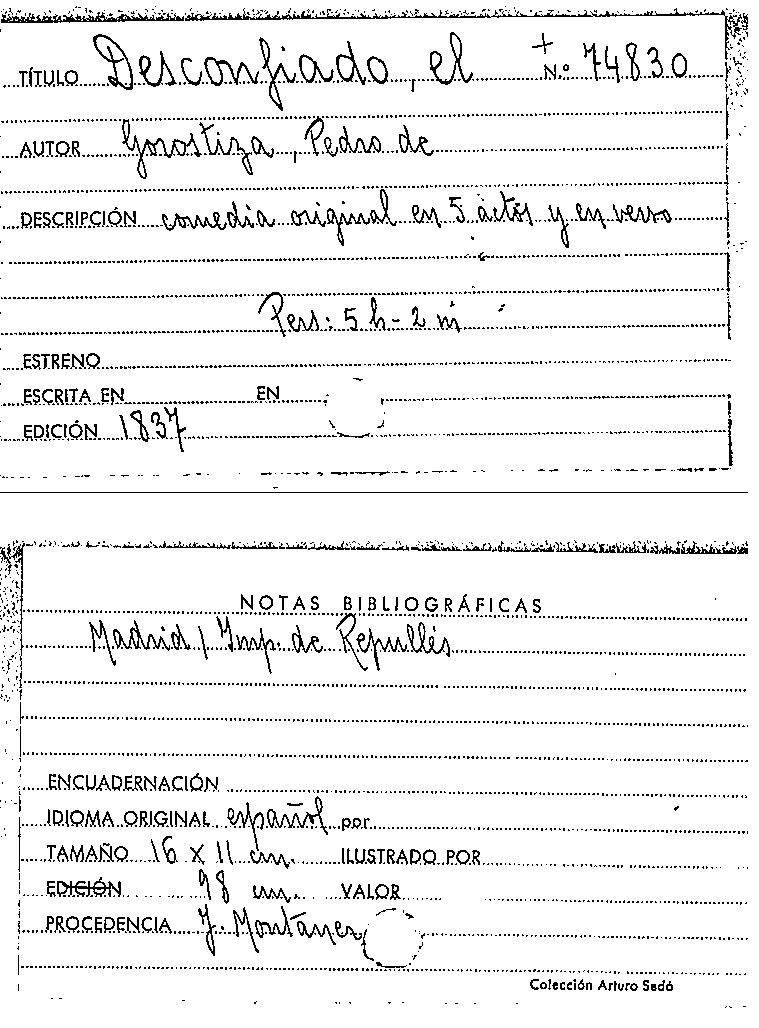 TÍTULO Desconfiado, el + N.º 74830
AUTOR Gorostiza, Pedro de
DESCRIPCIÓN comedia original en 5 actos y en verso
Pers: 5 h - 2 m
ESTRENO
ESCRITA EN EN
EDICIÓN 1837
NOTAS BIBLIOGRÁFICAS
Madrid / Imp. de Repullés
ENCUADERNACIÓN
IDIOMA ORIGINAL español por
TAMAÑO 16 x 11 cm. ILUSTRADO POR
EDICIÓN 98 VALOR
PROCEDENCIA J. Montaner
Colección Arturo Sedó